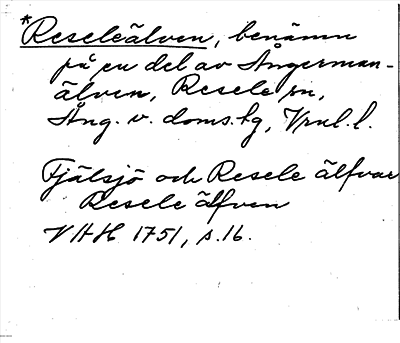 *Reseleälven, benämn
på en del av Ångerman-
älven, Resele sn,
Ång. v. doms:hg, Vnl. l.
Fjälsjö och Resele älfvar
Resele älfven
VAH 1751, s. 16.